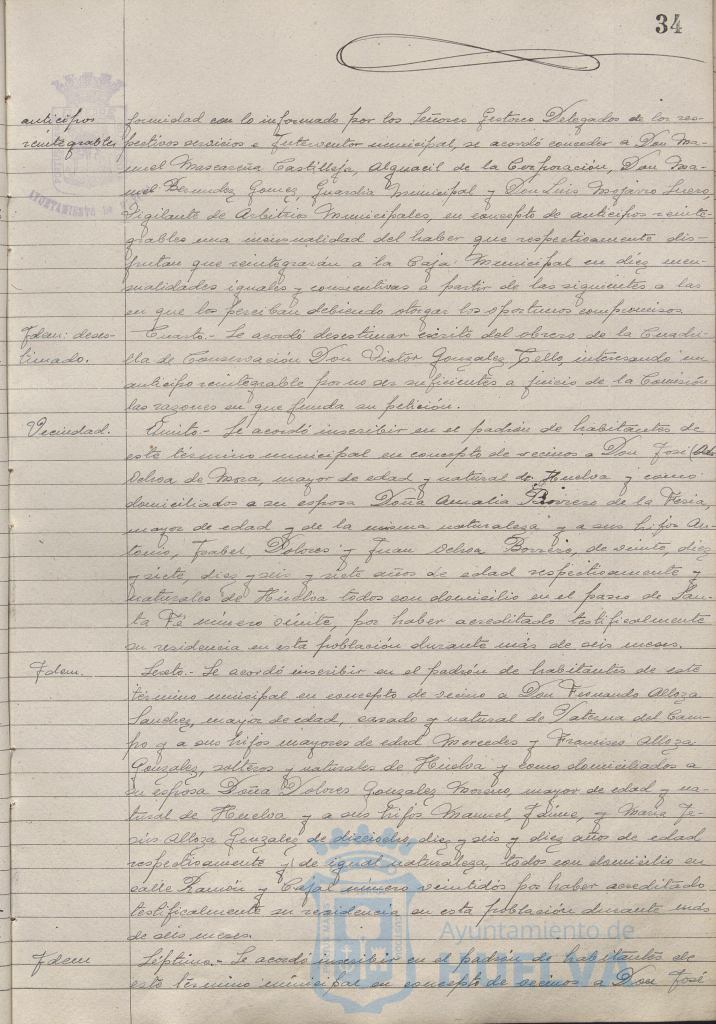 34
anticipos
reintegrables
formidad con lo informado por los Señores Gestores Delegados de los res-
pectivos servicios e Interventor municipal, se acordó conceder a Don Ma-
nuel Mascareña Castilleja, Alguacil de la Corporación, Don Ma-
nuel Bermudez Gomez, Guardia Municipal y Don Luis Mojarro
Vigilante de Arbitrios Municipales, en concepto de anticipos reinte-
grables una mensualidad del haber que respectivamente dis-
frutan que reintegrarán a la Caja Municipal en diez men-
sualidades iguales y consecutivas a partir de las siguientes a las
en que los perciban debiendo otorgar los oportunos compromisos.
Idem: deses-
timado.
Cuarto.- Se acordó desestimar escrito del obrero de la Cuadri-
lla de Conservación Don Victor Gonzalez Tello interesando un
anticipo reintegrable por no ser suficientes a juicio de la Comisión
las razones en que funda su petición.
Vecindad.
Quinto.- Se acordó inscribir en el padrón de habitantes de
este término municipal en concepto de vecinos a Don José
Ochoa de Mora, mayor de edad y natural de Huelva y como
domiciliados a su esposa Doña Amalia Borrero de la Feria,
mayor de edad y de la misma naturaleza y a sus hijos An-
tonio, Isabel, Dolores y Juan Ochoa Borrero, de veinte, diez
y siete, diez y seis y siete años de edad respectivamente y
naturales de Huelva todos con domicilio en el paseo de San-
ta Fé número veinte, por haber acreditado testificalmente
su residencia en esta población durante más de seis meses.
Idem.
Sexto.- Se acordó inscribir en el padrón de habitantes de este
término municipal en concepto de vecino a Don Fernando Alloza
Sanchez, mayor de edad, casado y natural de Paterna del Cam-
po y a sus hijos mayores de edad Mercedes y Francisco Alloza
Gonzalez, solteros y naturales de Huelva y como domiciliados a
su esposa Doña Dolores Gonzalez Moreno, mayor de edad y na-
tural de Huelva y a sus hijos Manuel, Jaime, y Maria Je-
sús Alloza Gonzalez de dieciocho, diez y seis y diez años de edad
respectivamente y de igual naturaleza, todos con domicilio en
calle Ramón y Cajal número veintidos por haber acreditado
testificalmente su residencia en esta población durante más
de seis meses.
Idem
Séptimo.- Se acordó inscribir en el padrón de habitantes de
este término municipal en concepto de vecinos a Don José
Ayuntamiento de
HUELVA